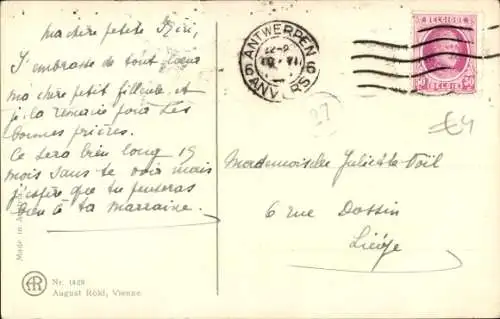 ma chère petite
J'embrasse de tout cœur
ma chère petit filleule et
je la remercie pour les
bonnes prières.
Ce sera bien long 15
mois sans te voir mais
j'espère que tu penseras
bien à ta marraine.
Made in
AR
Nr. 1428
August Rökl, Vienne.
ANTWERPEN
6 6
ANVERS
BELGIQUE
50 50
BELGIË
27
€4
Mademoiselle Juliette
6 rue Dossin
Liége